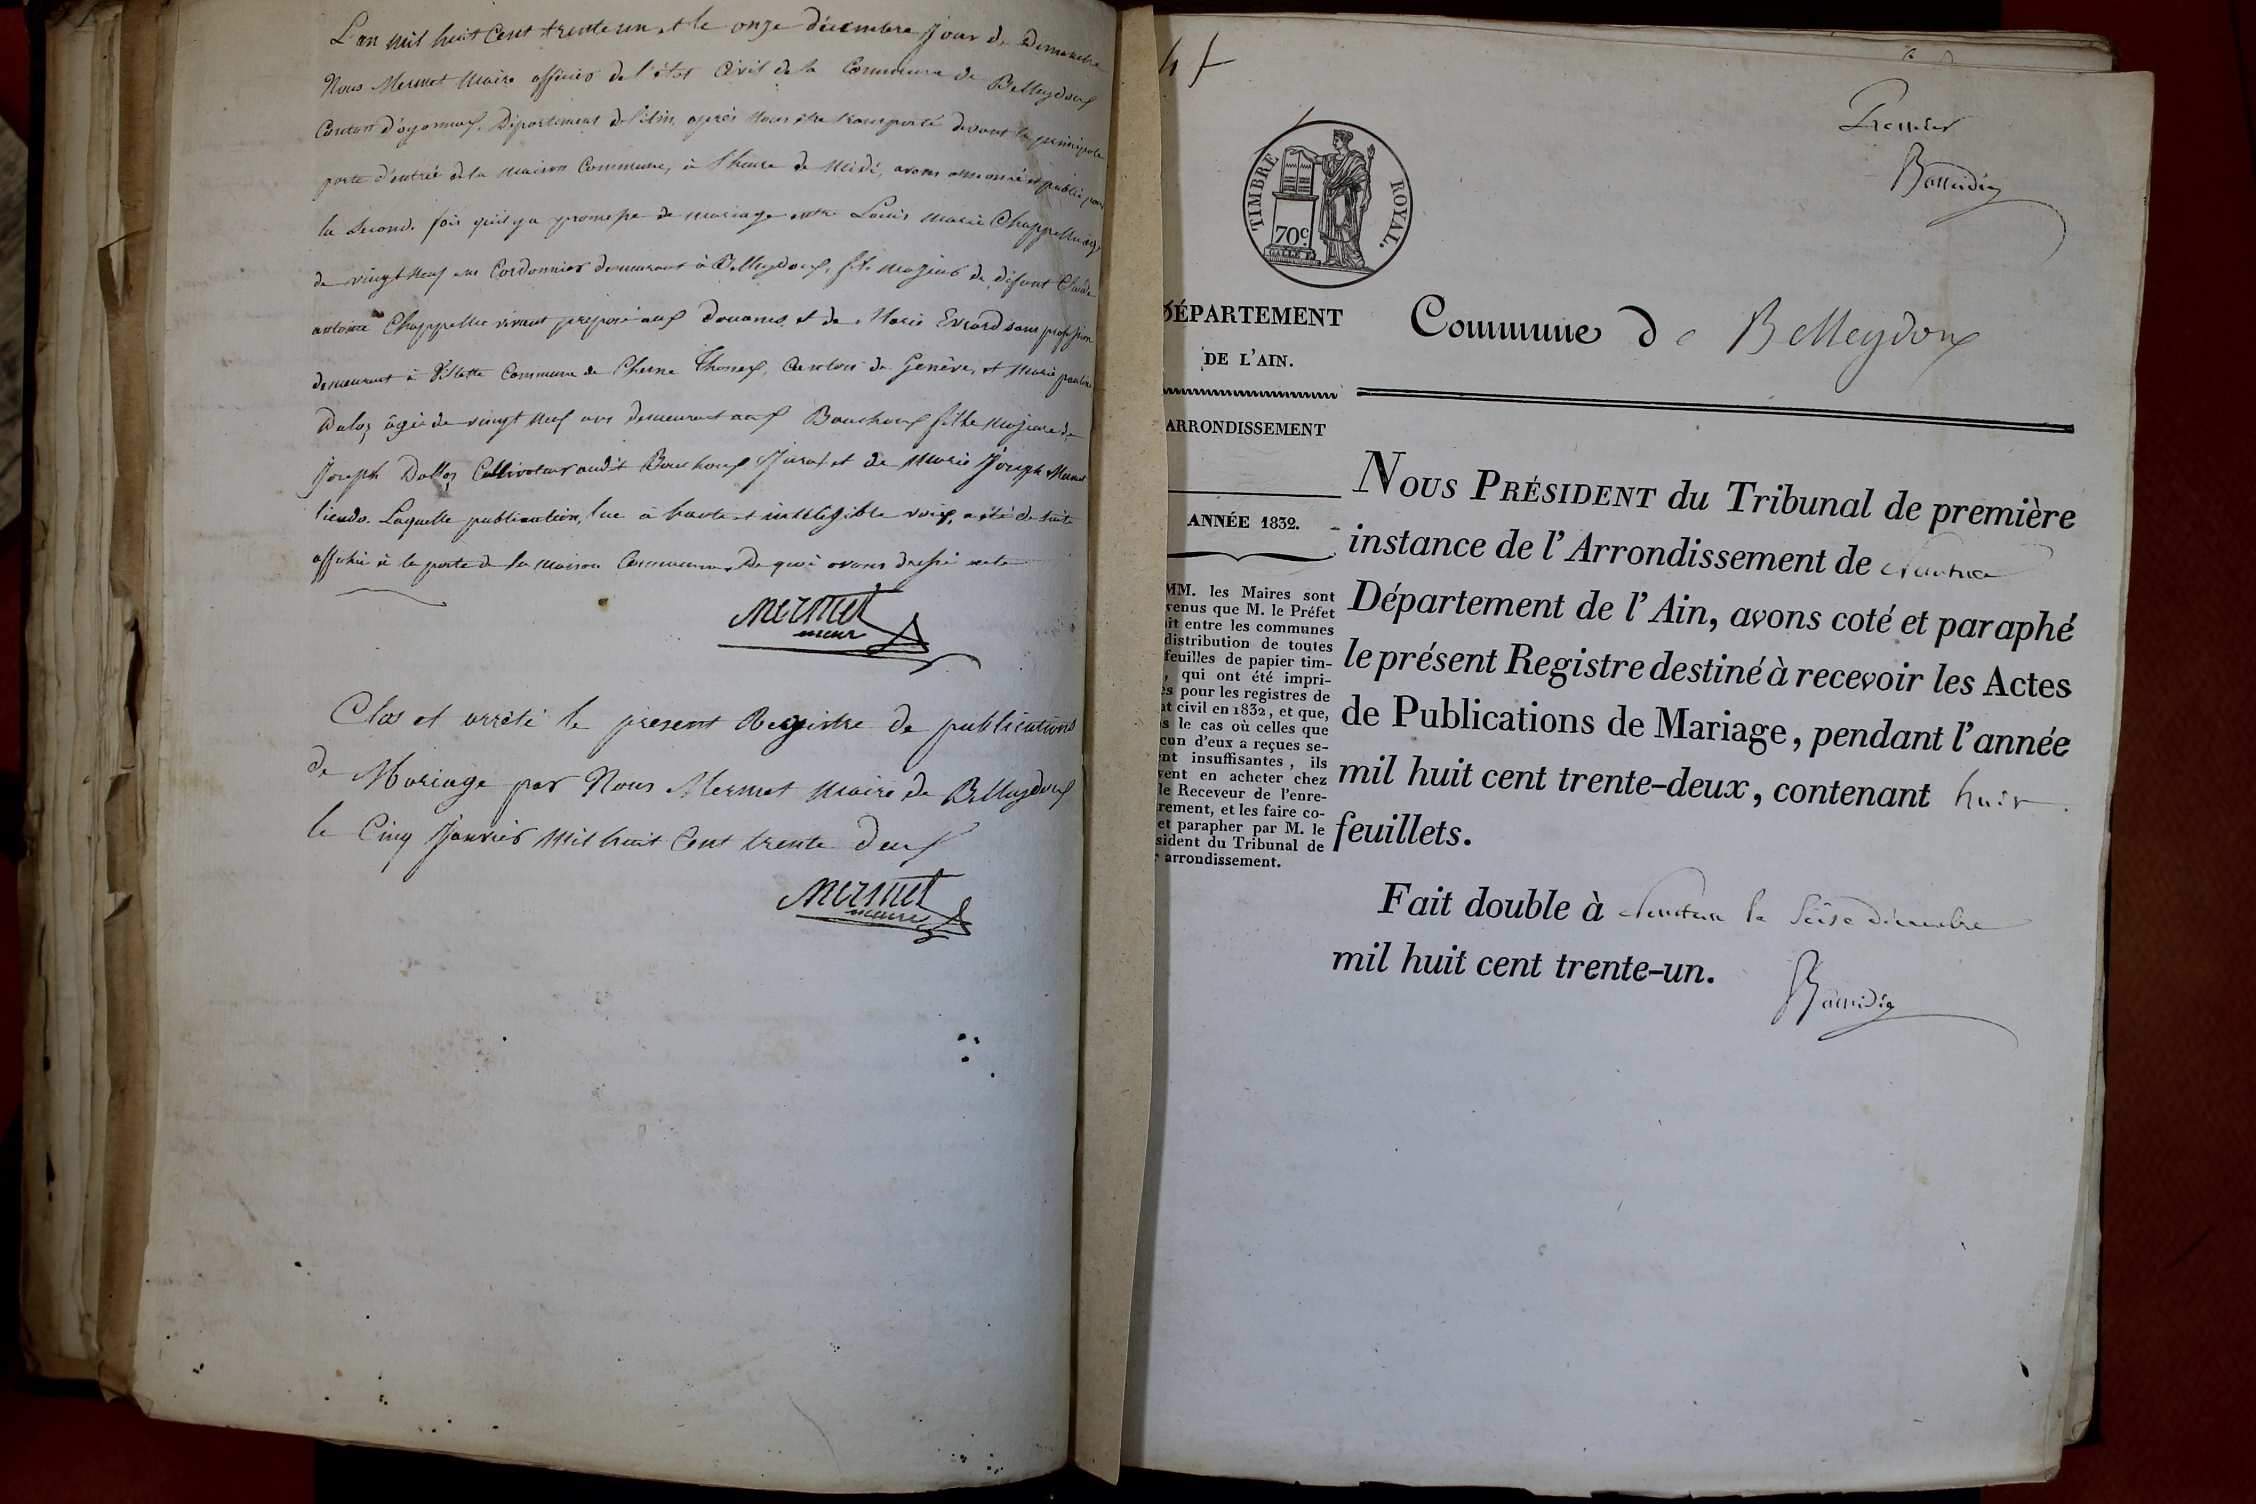 L'an mil huit Cent trente un, et le onze décembre Jour de Dimanche
Nous Mermet Maire officier de l'état Civil de la Commune de Belleydoux
Canton d'oyonnax, Département de l'Ain, après Nous être transporté devant la principale
porte d'entrée de la Maison Commune, à l'heure de Midi, avons annoncé et publié pour
la Seconde fois qu'il y a promesse de mariage entre Louis Marie Chappelle agé
de vingt Neuf ans Cordonnier demeurant à Belleydoux, fils majeur de défunt Claude
antoine Chappelle vivant préposé aux Douanes, et de Marie Evrard sans profession
demeurant à Vilette Commune de Chene Thonex, Canton de Genève, et Marie pauline
Daloz âgée de vingt Neuf ans demeurant aux Bouchoux fille Majeure de
Joseph Dalloz Cultivateur audit Bouchoux Jura, et de Marie Joseph Mermet
Laquelle publication, lue à haute et intelligible voix, a été de suite
affichée à la porte de la Maison Commune. De quoi avons dressé acte
Mermet
maire
Clos et arrêté le présent Registre de publications
de Mariage par Nous Mermet Maire de Belleydoux
le Cinq Janvier Mil huit Cent trente Deux
Mermet
maire
Premier
TIMBRE ROYAL.
70c.
DÉPARTEMENT
DE L'AIN.
Commune de Belleydoux
ARRONDISSEMENT
ANNÉE 1832.
MM. les Maires sont
venus que M. le Préfet
it entre les communes
distribution de toutes
feuilles de papier tim-
, qui ont été impri-
es pour les registres de
at civil en 1832, et que,
s le cas où celles que
cun d'eux a reçues se-
ent insuffisantes, ils
vent en acheter chez
le Receveur de l'enre-
rement, et les faire co-
et parapher par M. le
sident du Tribunal de
r arrondissement.
Nous Président du Tribunal de première
instance de l'Arrondissement de Nantua
Département de l'Ain, avons coté et paraphé
le présent Registre destiné à recevoir les Actes
de Publications de Mariage, pendant l'année
mil huit cent trente-deux, contenant huit
feuillets.
Fait double à Nantua le Seise décembre
mil huit cent trente-un.